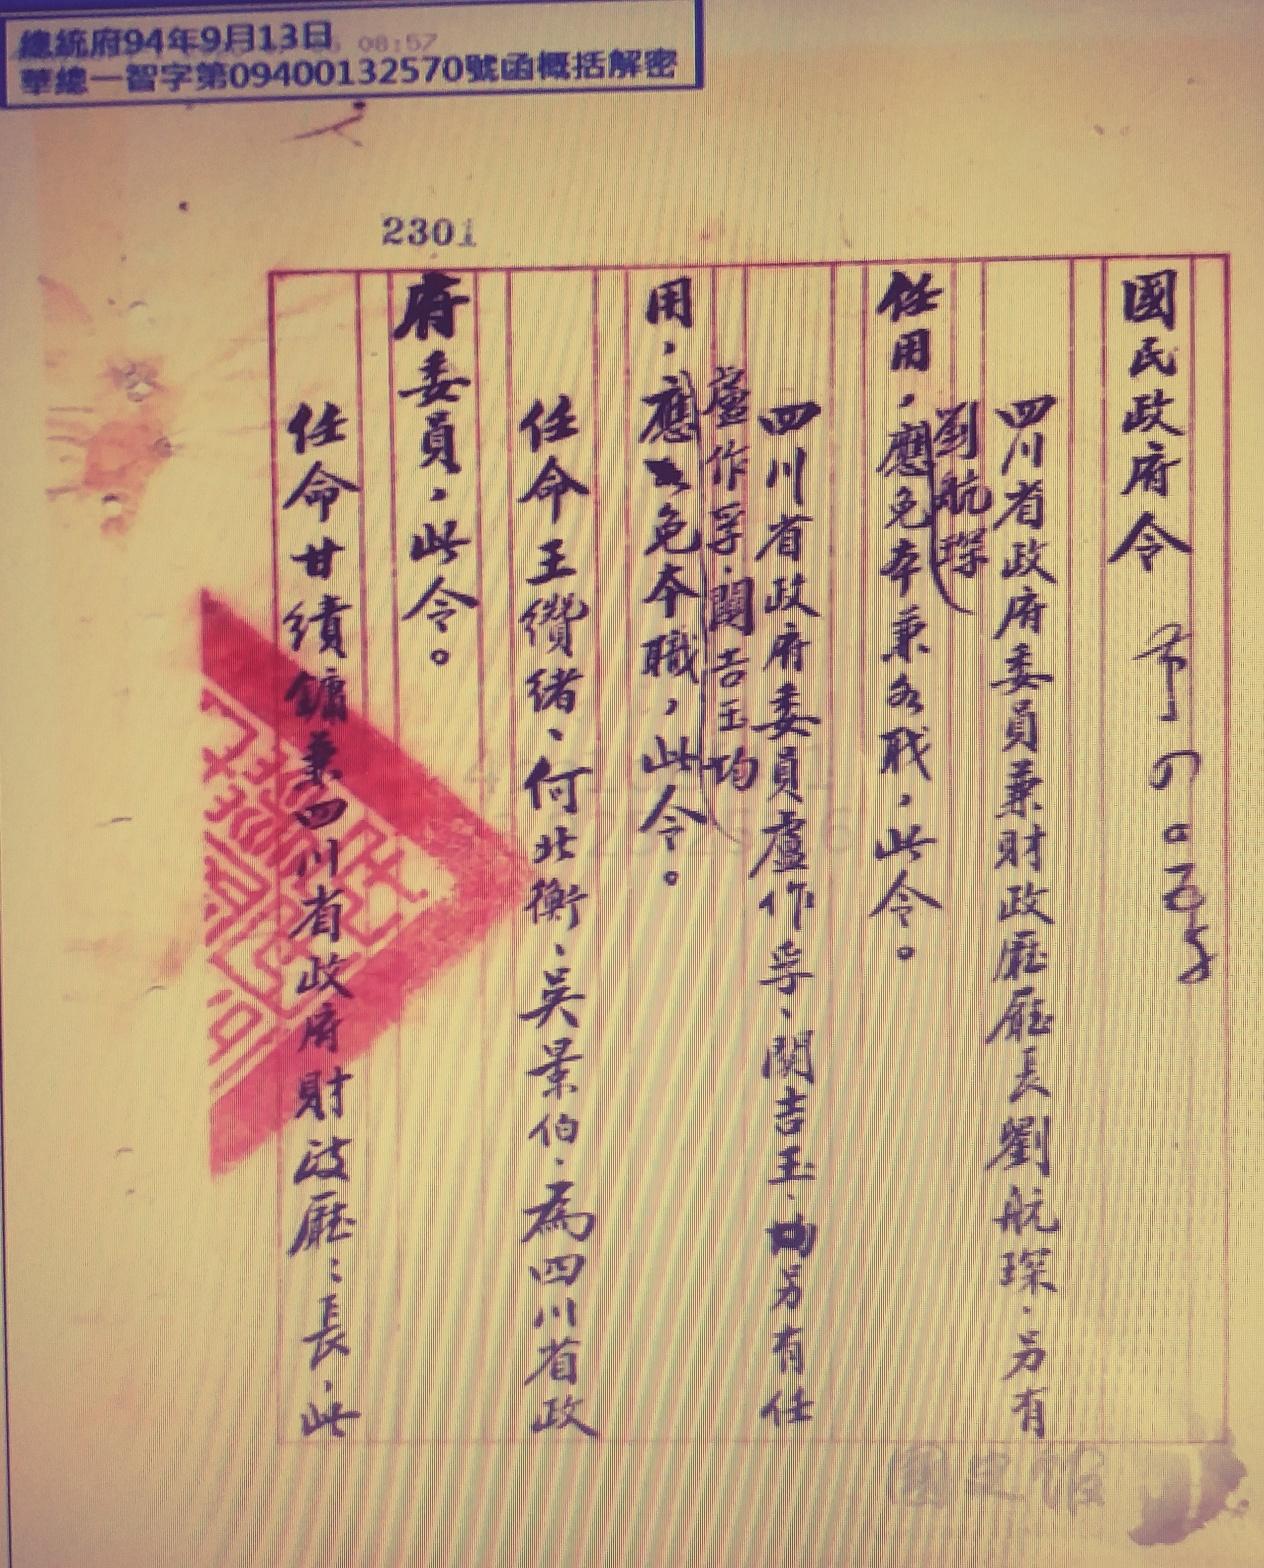 總統府94年9月13日 08:57
華總一智字第09400132570號函概括解密
2301
國民政府令
四川省政府委員兼財政廳廳長劉航琛、另有
劉航琛
任用，應免本兼各職，此令。
四川省政府委員盧作孚、関吉玉、均另有任
盧作孚、關吉玉均
用，應免本職，此令。
任命王纘緒、何北衡、吳景伯、為四川省政
府委員，此令。
任命甘績鏞兼四川省政府財政廳：長，此
國史館